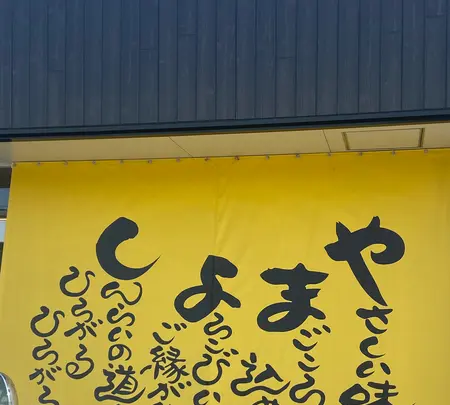 やさしい味
まごころ
込め
よろこびい
ご縁が
しんらいの道
ひろがる
ひろがる